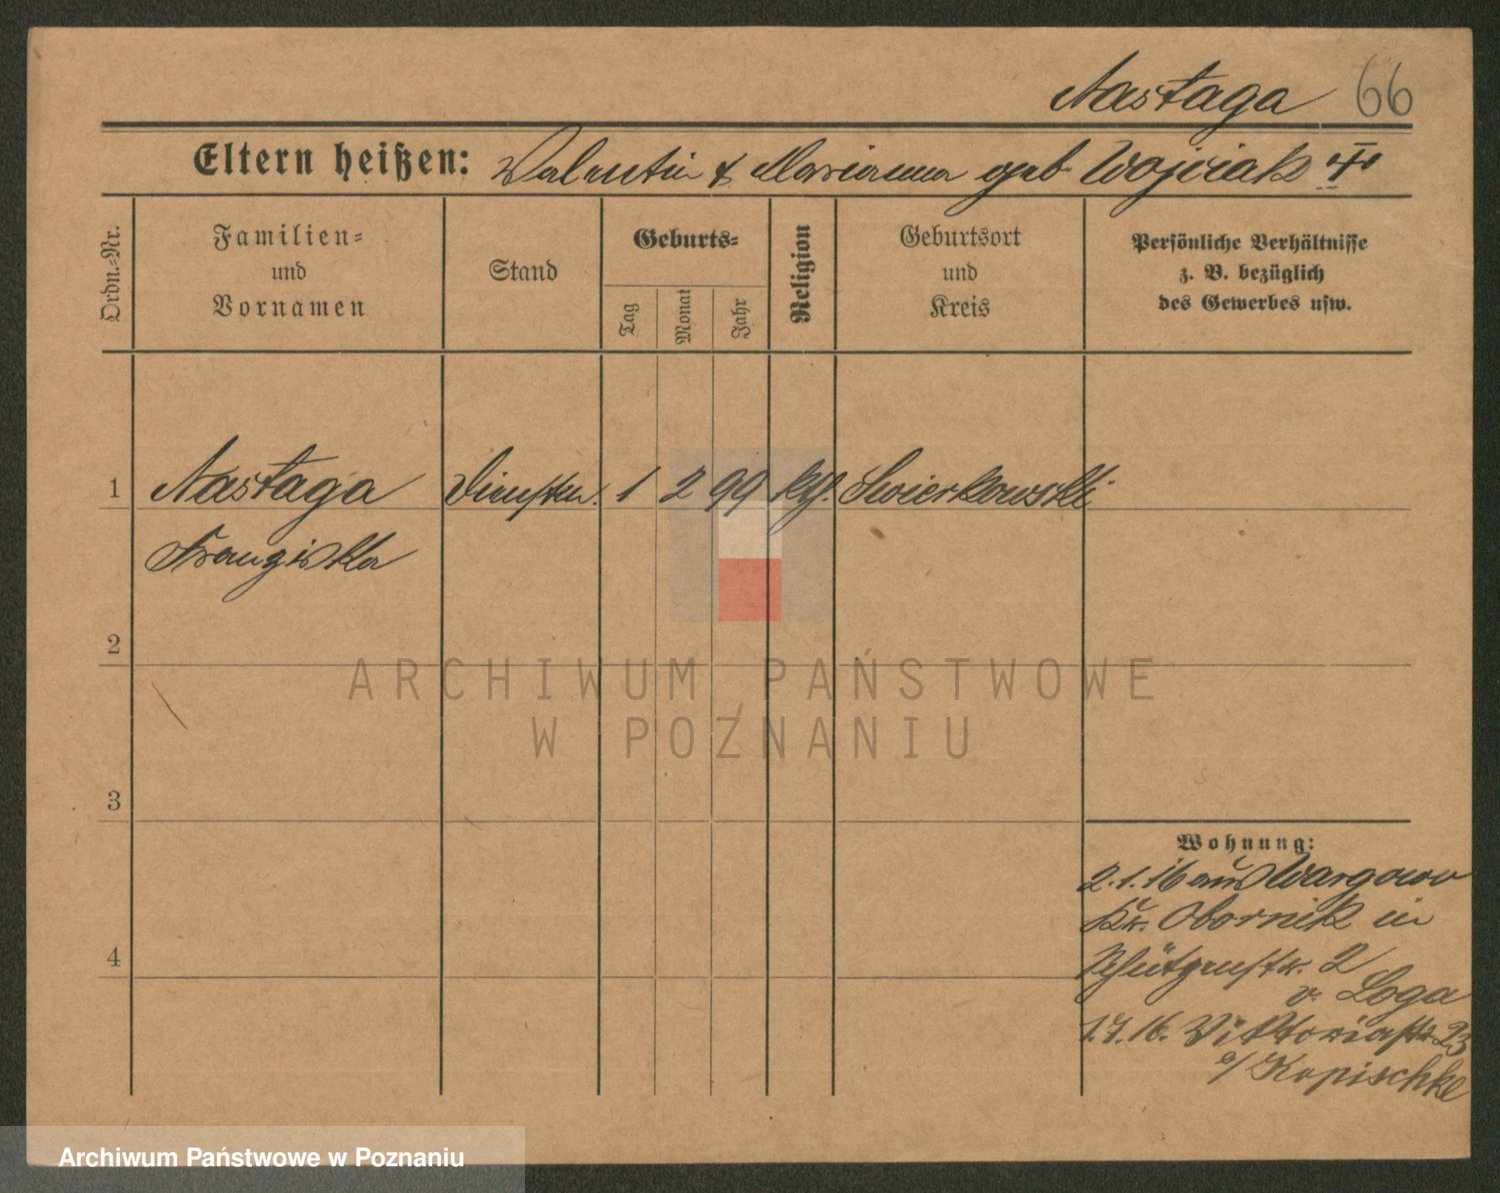 Nastaga 66
Eltern heißen: Valentin & Marianna geb Wojciak
Ordn.-Nr.
Familien-
und
Vornamen
Stand
Geburts-
Tag
Monat
Jahr
Religion
Geburtsort
und
Kreis
Persönliche Verhältnisse
z. B. bezüglich
des Gewerbes usw.
1 Nastaga 1 2 99 Swierkowski
Franziska
2
3
4
Wohnung:
2.1.16 aus Wargowo
Kr. Obornik in
Schützenstr. 2
v. Loga
1.7.16. Viktoriastr 23
b/ Kopischke
ARCHIWUM PAŃSTWOWE
W POZNANIU
Archiwum Państwowe w Poznaniu